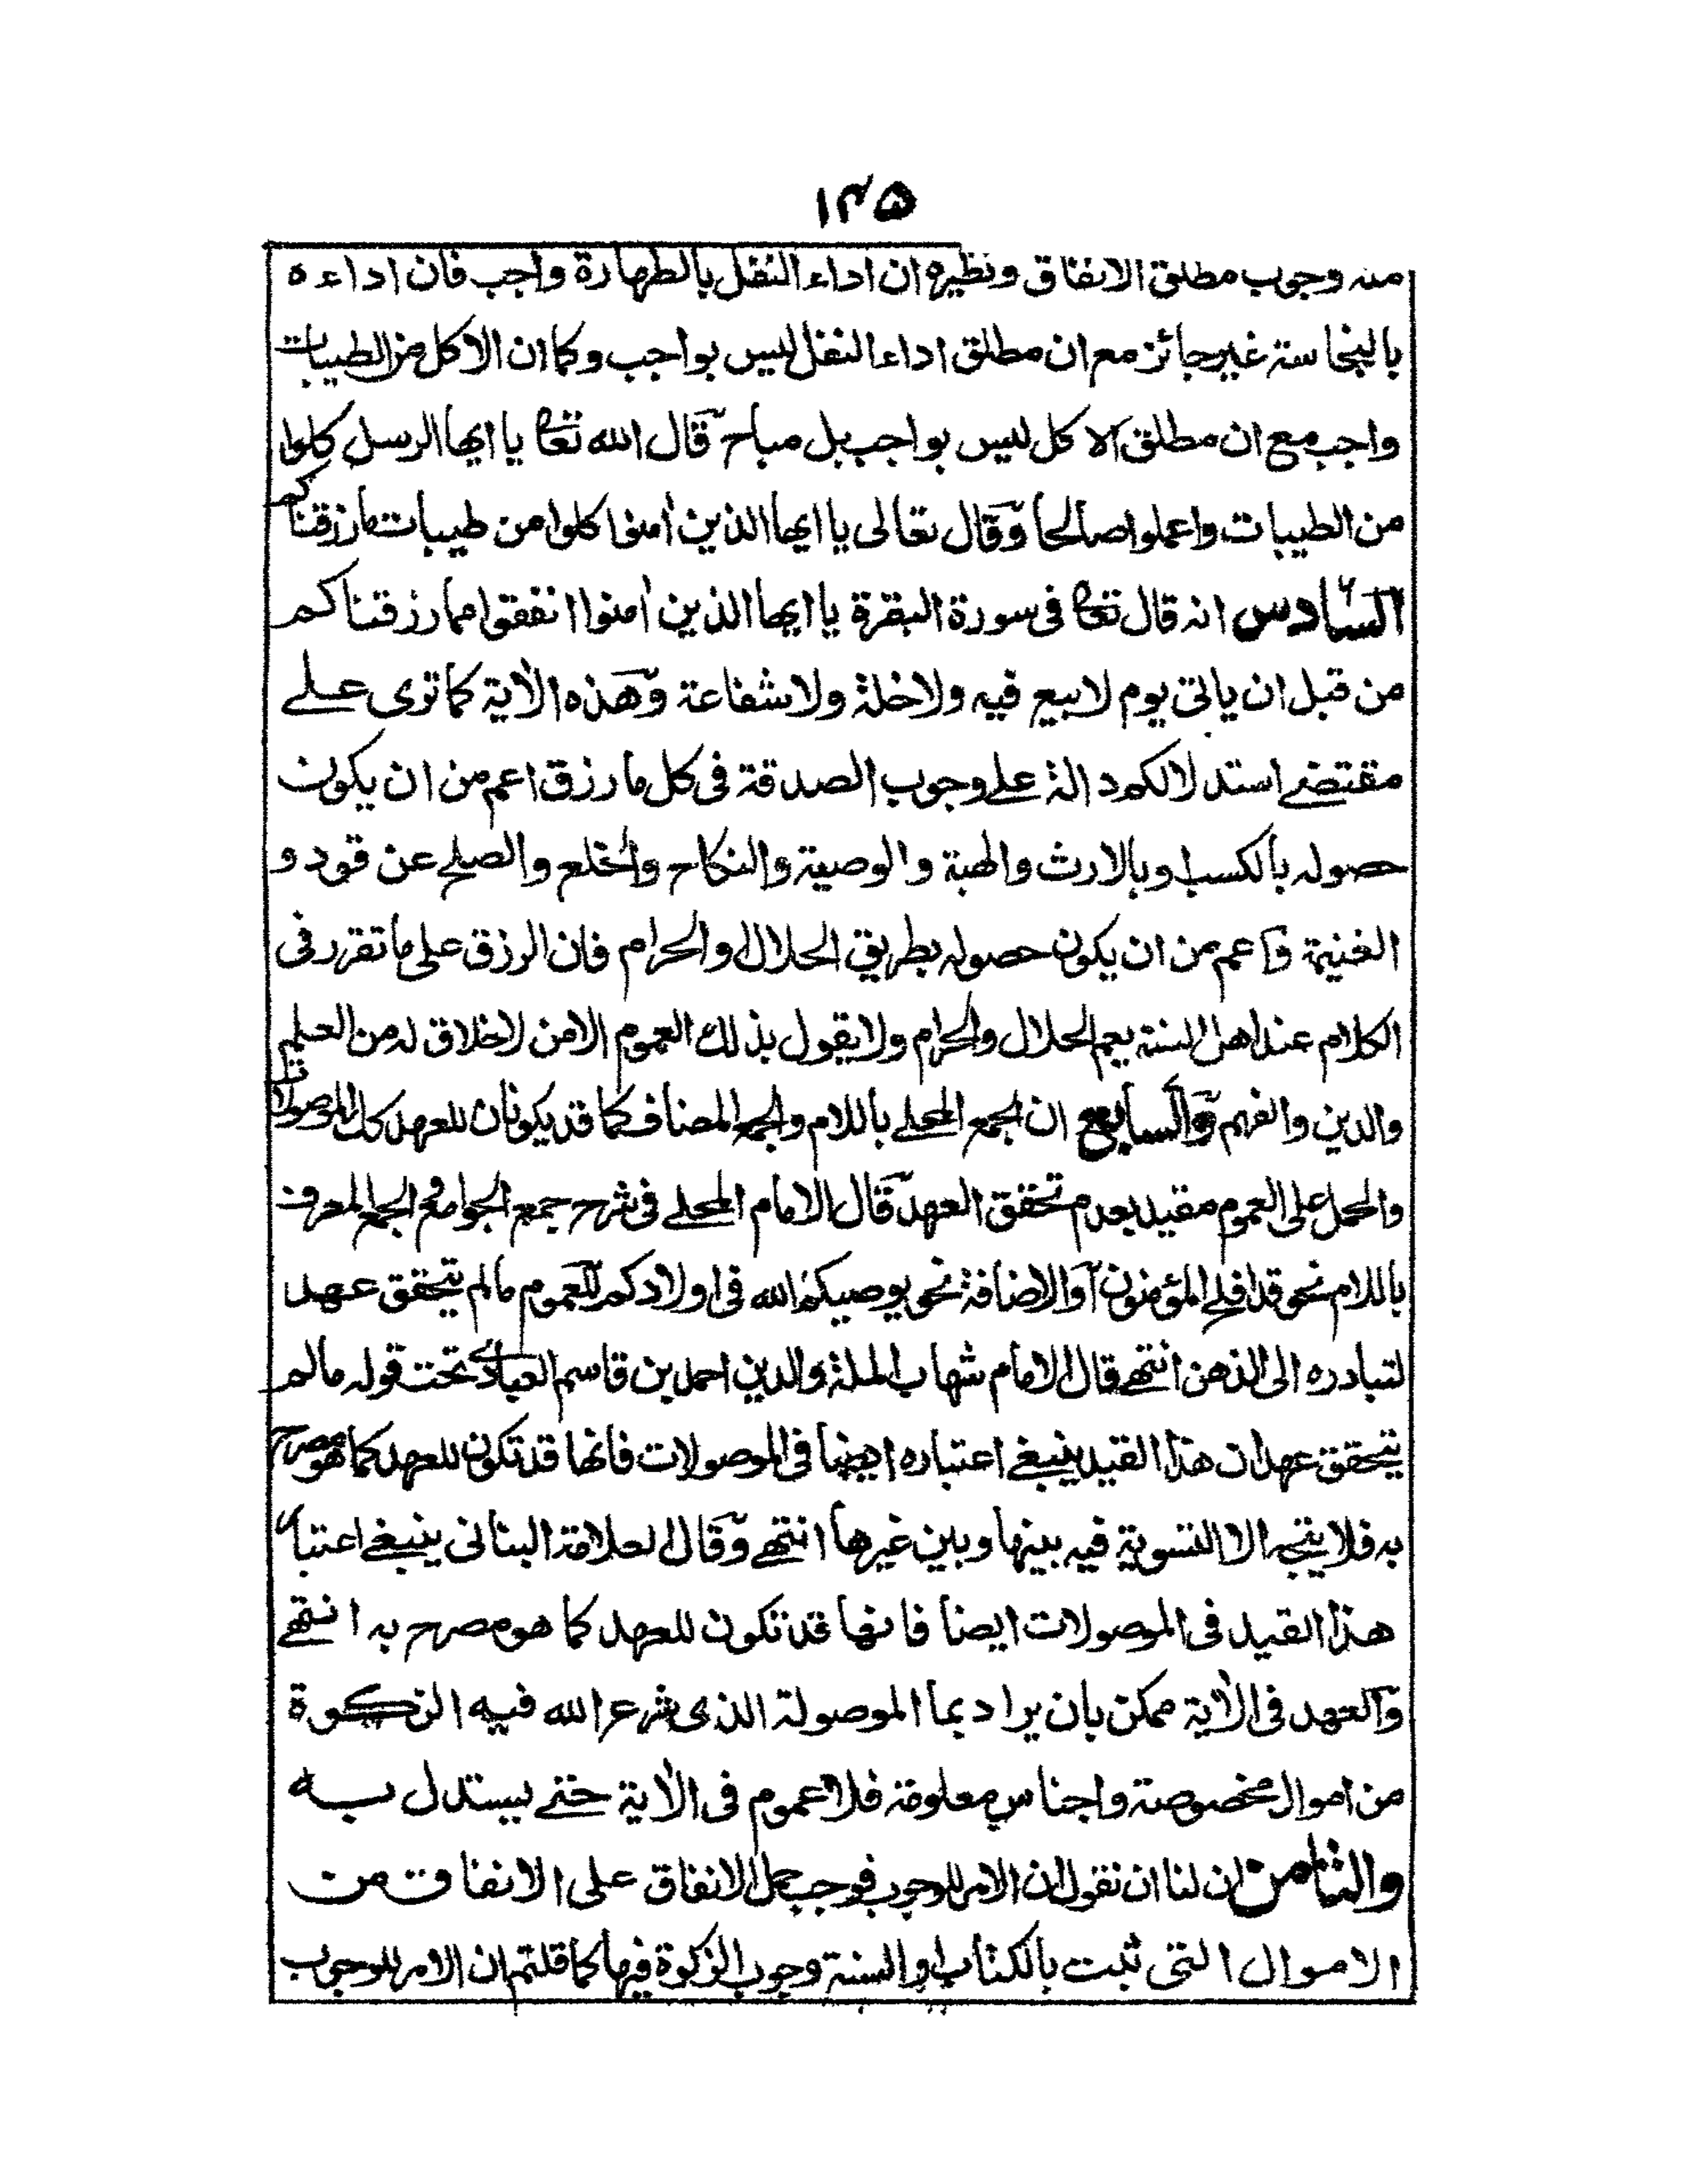 ١٣٥
منه وجوب مطلق الانفاق ونظيره ان اداء النفل بالطهارة واجب فان اداءه
بالنجاسة غير جائز مع ان مطلق اداء النفل ليس بواجب وكما ان الاكل من الطيبات
واجب مع ان مطلق الاكل ليس بواجب بل مباح قال الله تعا يا ايها الرسل كلوا
من الطيبات واعملوا صالحا وقال تعالى يا ايها الذين اٰمنوا كلوا من طيبات ما رزقناكم
السادس انه قال تعا فى سورة البقرة يا ايها الذين اٰمنوا انفقوا مما رزقناكم
من قبل ان ياتى يوم لا بيع فيه ولا خلة ولا شفاعة وهذه الاٰية كما ترى علے
مقتضے استدلالكم دالة علے وجوب الصدقة فى كل ما رزق اعم من ان يكون
حصوله بالكسب او بالارث والهبة والوصية والنكاح والخلع والصلح عن قود و
الغنيمة واعم من ان يكون حصوله بطريق الحلال والحرام فان الرزق على ما تقرر فى
الكلام عند اهل السنة يعم الحلال والحرام ولا يقول بذلك العموم الا من لا خلاق له من العلم
والدين والفهم والسابع ان الجمع المحلے باللام والجمع المضاف كما قد يكونان للعهد كك الموصولات
والحمل على العموم مقيد بعدم تحقق العهد قال الامام المحلے فى شرح جمع الجوامع والجمع المعرف
باللام نحو قد افلح المؤمنون او الاضافة نحو يوصيكم الله فى اولادكم للعموم ما لم يتحقق عهد
لتبادره الى الذهن انتهے قال الامام شهاب الملة والدين احمد بن قاسم العبادے تحت قوله ما لم
يتحقق عهد ان هذا القيد ينبغے اعتباره ايضا فى الموصولات فانها قد تكون للعهد كما هو مصرح
به فلا يتجه الا التسوية فيه بينها وبين غيرها انتهے وقال العلامة البنانى ينبغے اعتبار
هذا القيد فى الموصولات ايضا فانها قد تكون للعهد كما هو مصرح به انتهے
والعهد فى الاٰية ممكن بان يراد بما الموصولة الذى شرع الله فيه الزكوة
من اموال مخصوصة واجناس معلومة فلا عموم فى الاٰية حتے يستدل به
والثامن ان لنا ان نقول ان الامر للوجوب فوجب حمل الانفاق على الانفاق من
الاموال التى ثبت بالكتاب او السنة وجوب الزكوة فيها كما قلتم ان الامر للوجوب